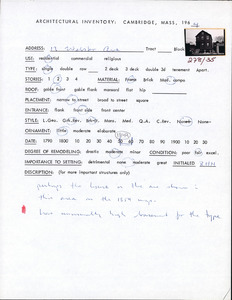 ARCHITECTURAL INVENTORY: CAMBRIDGE, MASS, 196
278/55
ADDRESS: 13 Tract Block
USE: residential commercial religious
TYPE: single double row 2 deck 3 deck 3 deck 3d tenement Apart.
STORIES: 1 2 3 4 MATERIAL: Frame Brick Comp.
ROOF: gable front gable flank mansard flat hip
PLACEMENT: narrow to street broad to street square
ENTRANCE: front side front center
STYLE: L.Geo. Brk. Mans. Q.A. None
ORNAMENT: little moderate elaborate
DATE: 1790 1800 10 20 30 40 50 60 70 80 90 1900 10 20 30
DEGREE OF REMODELING: drastic moderate minor CONDITION: poor fair excel.
IMPORTANCE TO SETTING: detrimental none moderate great INITIALED
DESCRIPTION: (for more important structures only)
perhaps the house is the one shown in
this area on the 1854 map.
has unusually high basement for the type